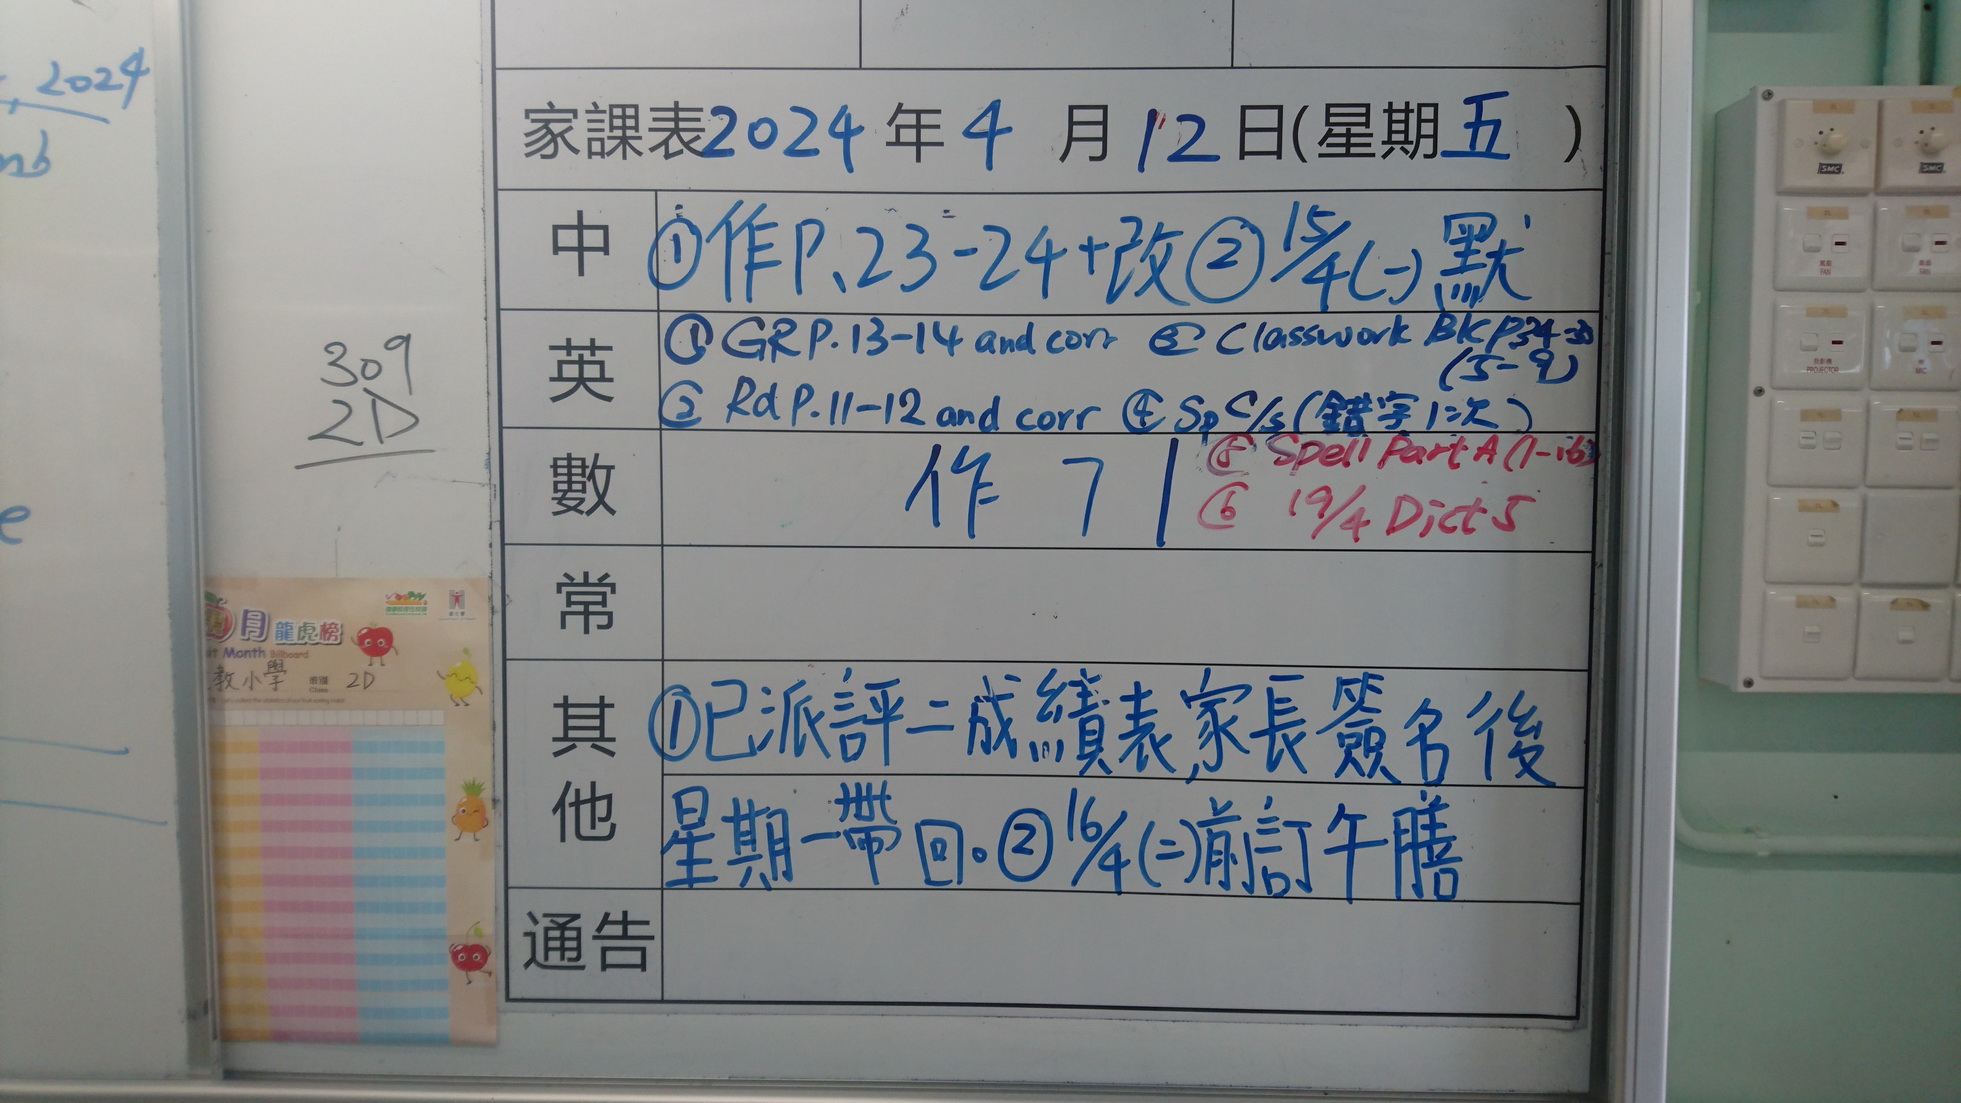 2024
309
2D
家課表2024年4月12日(星期五)
中 ①作P.23-24+改②15/4(一)默
英 ① GR P.13-14 and corr ③ Classwork BK P34-
(5-9)
② Rd P.11-12 and corr ④ Sp C/s (錯字1:次)
數 作 71 ⑤ Spell Part A (1-16)
⑥ 19/4 Dict 5
常
其他 ①已派評二成績表,家長簽名後
星期一帶回。②16/4(二)前訂午膳
通告
月龍虎榜
Month Billboard
教小學 班別 Class 2D
SMC
SMC
風扇 FAN
風扇 FAN
PROJECTOR
MIC